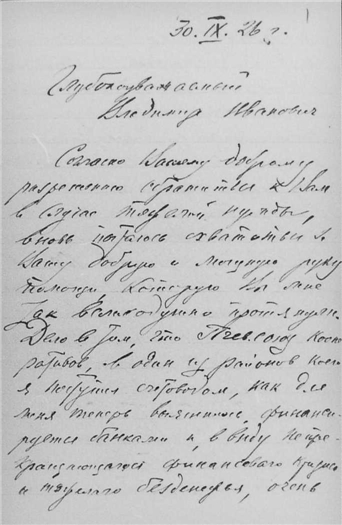 30. IX. 26 г.
Глубокоуважаемый
Владимир Иванович
Согласно Вашему доброму
разрешению обратиться к Вам
в случае тяжелой нужды,
вновь пытаюсь схватиться за
Вашу добрую и мощную руку
помощи которую Вы мне
так великодушно протянули.
Дело в том, что союз коопе
ративов, в один из районов коего
я поступил счетоводом, как для
меня теперь выяснилось, финанси-
руется банками и, в виду непре-
кращающагося финансоваго кризиса
и тяжелаго безденежья, очень